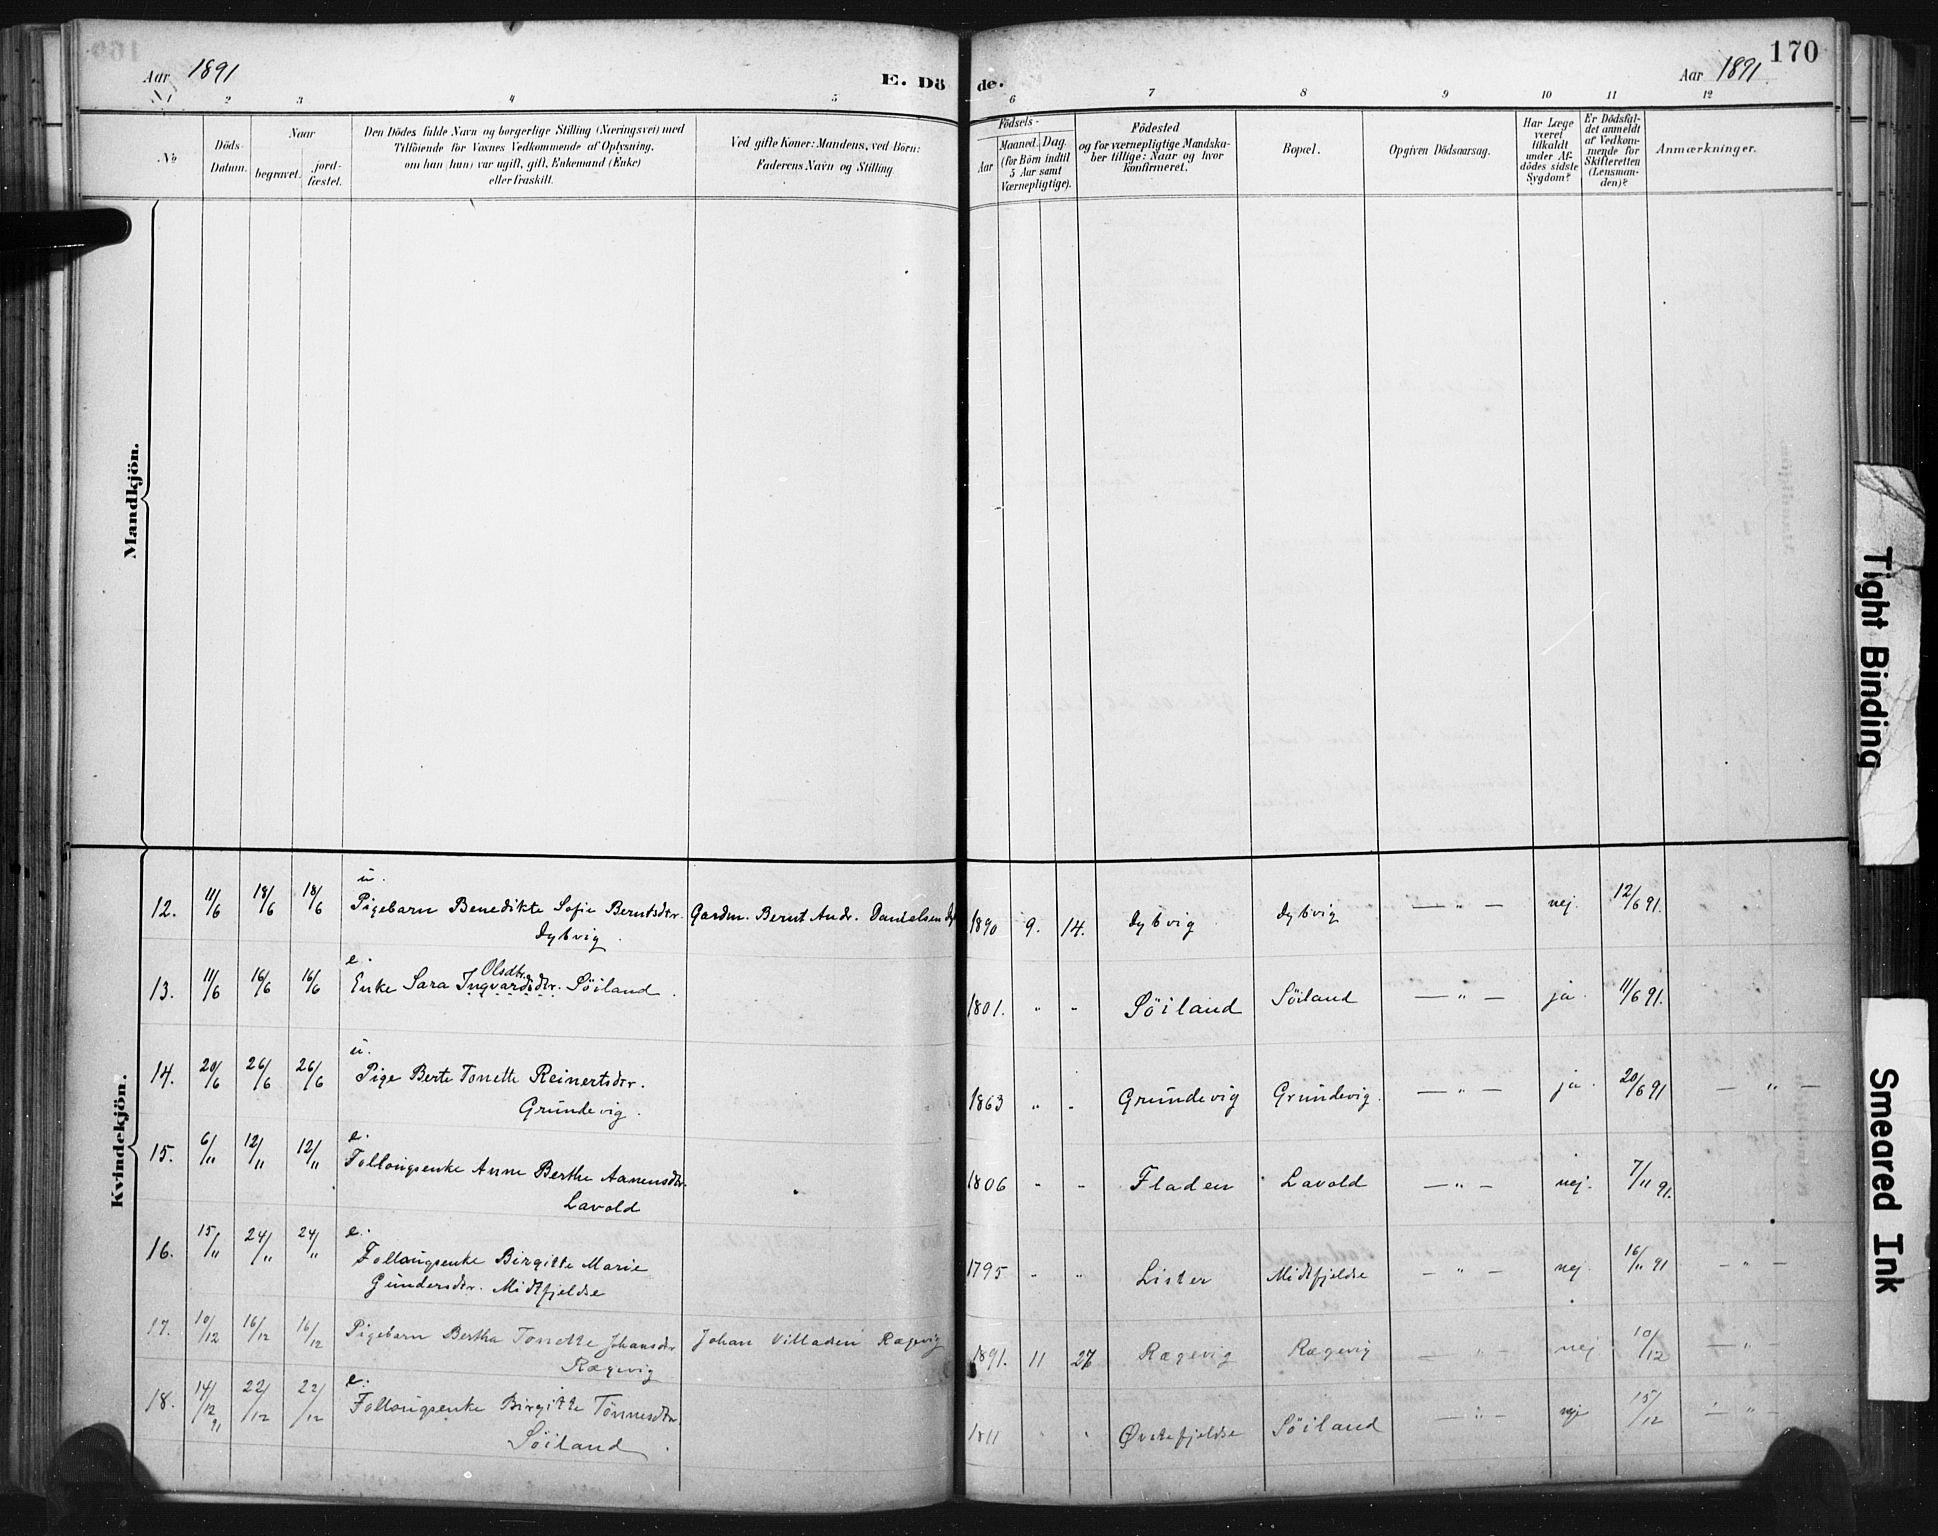 Aar 1891
E. Dö
de.
Aar 1891
170
1 2 3 4 5 6 7 8 9 10 11 12
No
Döds-
Datum.
Naar
begravet.
jord-
fæstet.
Den Dödes fulde Navn og borgerlige Stilling (Næringsvei) med
Tilföiende for Voxnes Vedkommende af Oplysning,
om han (hun) var ugift, gift, Enkemand (Enke)
eller fraskilt.
Ved gifte Koner: Mandens, ved Börn:
Faderens Navn og Stilling.
Födsels-
Aar
Maaned. Dag.
(for Börn indtil
5 Aar samt
Værnepligtige).
Födested
og for værnepligtige Mandska-
ber tillige: Naar og hvor
konfirmeret.
Bopæl.
Opgiven Dödsaarsag.
Har Læge
været
tilkaldt
under Af-
dödes sidste
Sygdom?
Er Dödsfal-
det anmeldt
af Vedkom-
mende for
Skifteretten
(Lensman-
den)?
Anmærkninger.
Mandkjön.
Kvindekjön.
u.
12. 11/6 18/6 18/6 Pigebarn Benedikte Sofie Berntsdtr. Gardm. Bernt Andr. Danielsen 1890 9. 14. Dybvig Dybvig — " — nej. 12/6 91.
Dybvig.
e.
Olsdtr.
13. 11/6 16/6 16/6 Enke Sara Ingvardsdtr. Söiland. 1801. " " Söiland Söiland — " — ja. 11/6 91.
u.
14. 20/6 26/6 26/6 Pige Berte Tonette Reinertsdtr. 1863 " " Grundevig Grundevig. — " — ja. 20/6 91 — " —
Grundevig.
e.
15. 6/11 12/11 12/11 Follougsenke Anne Berthe Aanensdtr. 1806 " " Fladen Lavold — " — nej. 7/11 91.
Lavold
e.
16. 15/11 24/11 24/11 Follougsenke Birgitte Marie 1795 " " Lister Midtfjeldse — " — nej. 16/11 91 — " —
Gundersdtr. Midtfjeldse
17. 10/12 16/12 16/12 Pigebarn Bertha Tonette Johansdtr Johan Villadsen Rægevig 1891. 11 27 Rægevig Rægevig — " — nej 10/12 — "
Rægevig
e.
18. 14/12 91 22/12 22/12 Follougsenke Birgitte Tönnesdtr 1811 " " Östefjeldse Söiland — " — nej 15/12 — " —
Söiland.
Tight Binding
Smeared Ink